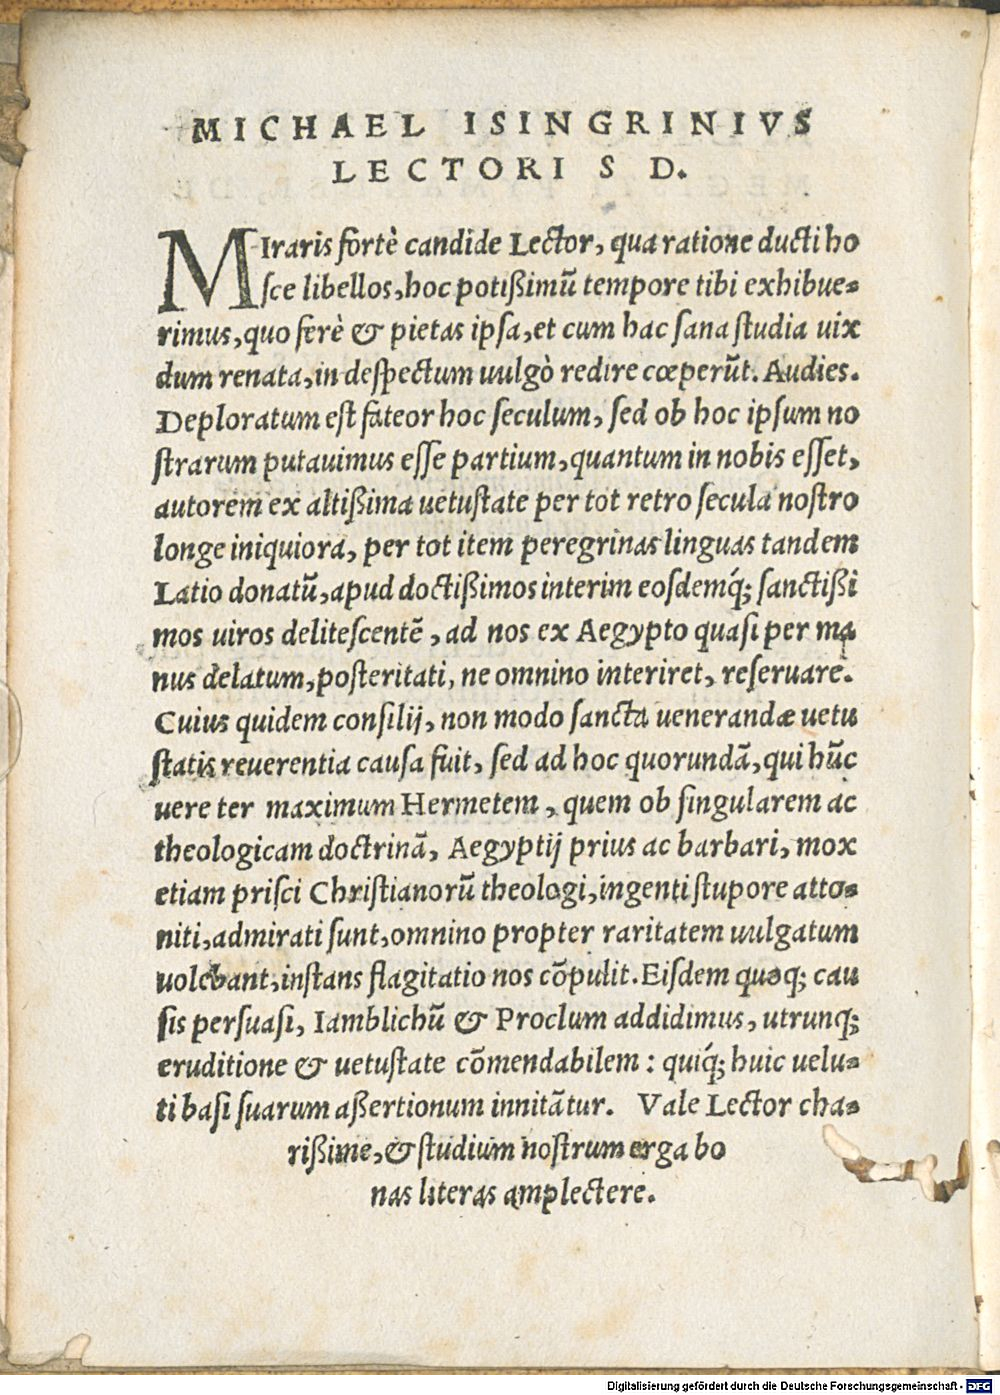 MICHAEL ISINGRINIVS
LECTORI S D.
MIraris fortè candide Lector, qua ratione ducti ho
sce libellos, hoc potißimũ tempore tibi exhibue-
rimus, quo ferè & pietas ipsa, et cum hac sana studia uix
dum renata, in despectum uulgò redire cœperũt. Audies.
Deploratum est fateor hoc seculum, sed ob hoc ipsum no
strarum putauimus esse partium, quantum in nobis esset,
autorem ex altißima uetustate per tot retro secula nostro
longe iniquiora, per tot item peregrinas linguas tandem
Latio donatũ, apud doctißimos interim eosdemq́; sanctißi
mos uiros delitescentẽ, ad nos ex Aegypto quasi per ma
nus delatum, posteritati, ne omnino interiret, reseruare.
Cuius quidem consilij, non modo sancta uenerandæ uetu
statis reuerentia causa fuit, sed ad hoc quorundã, qui hũc
uere ter maximum Hermetem, quem ob singularem ac
theologicam doctrinã, Aegyptij prius ac barbari, mox
etiam prisci Christianorũ theologi, ingenti stupore atto-
niti, admirati sunt, omnino propter raritatem uulgatum
uolebant, instans flagitatio nos cõpulit. Eisdem quoq; cau
sis persuasi, Iamblichũ & Proclum addidimus, utrunq;
eruditione & uetustate cõmendabilem: quiq́; huic uelu-
ti basi suarum aßertionum innitãtur. Vale Lector cha-
rißime, & studium nostrum erga bo
nas literas amplectere.
Digitalisierung gefördert durch die Deutsche Forschungsgemeinschaft - DFG